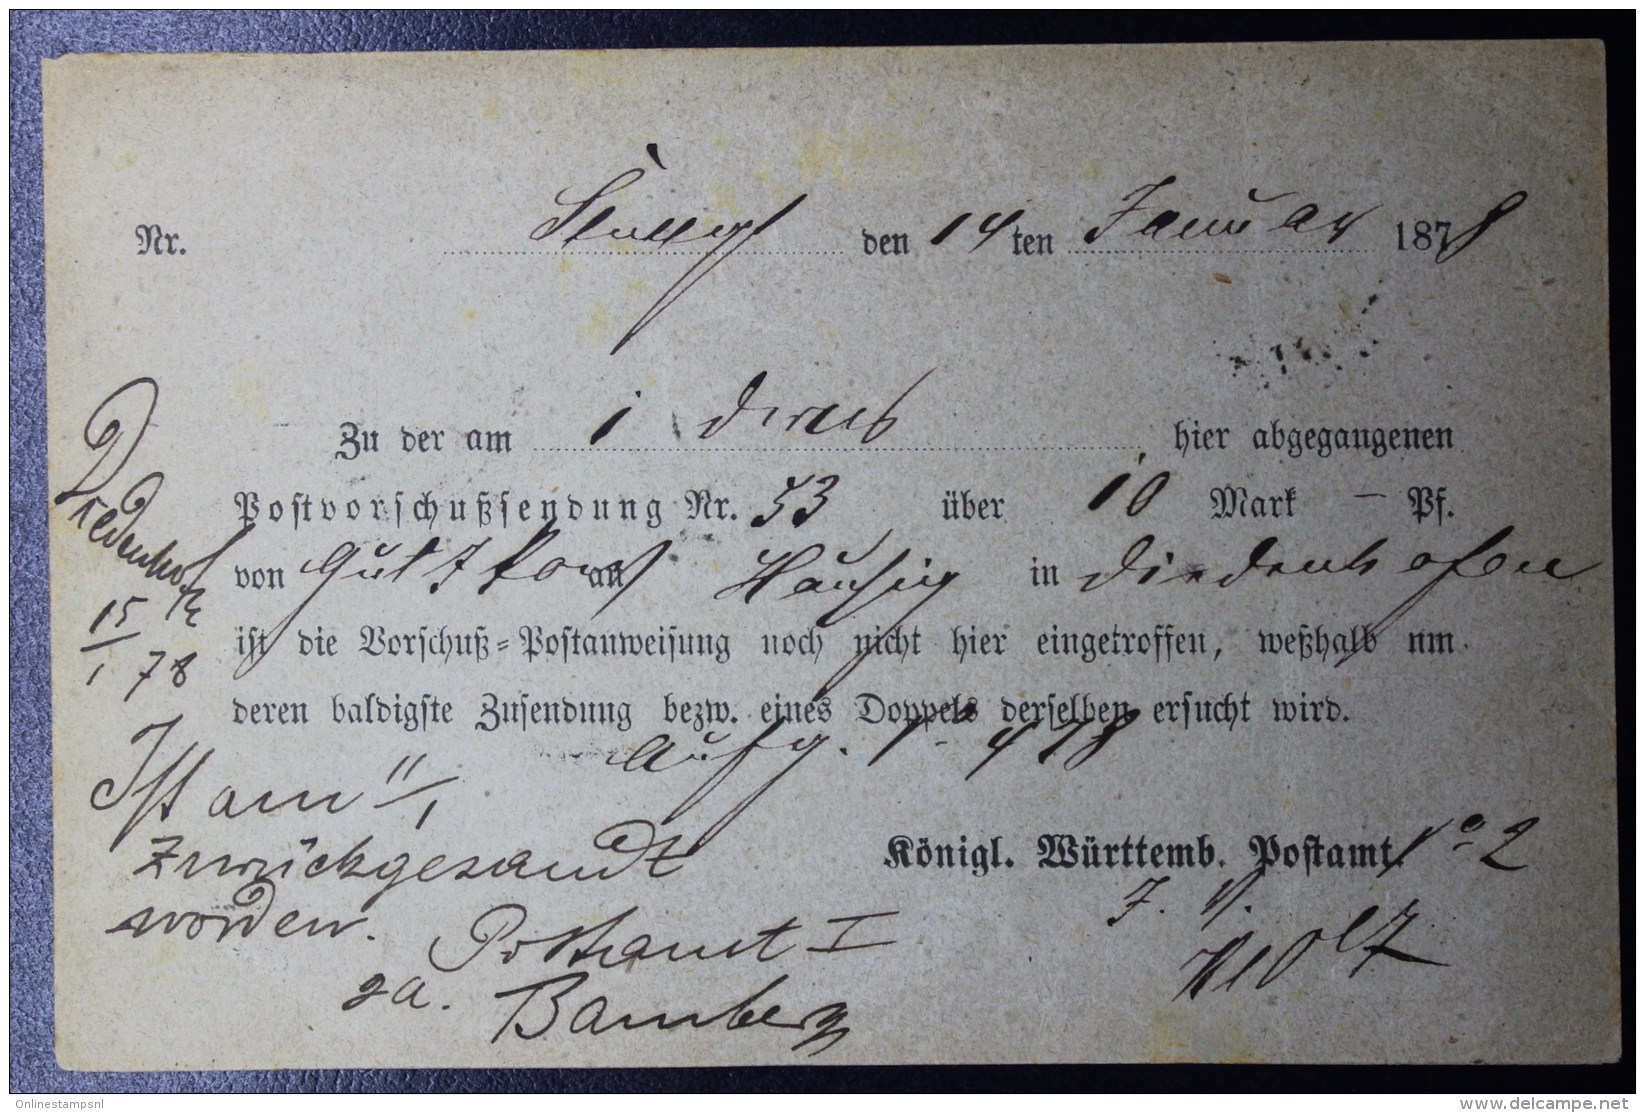 Nr. Stuttgt den 14 ten Januar 1878
Zu der am 1 dieses, hier abgegangenen
Postvorschußsendung Nr. 53 über 10 Mark – Pf.
von Gutzkow an Häusig in Diedenhofen
ist die Vorschuß=Postanweisung noch nicht hier eingetroffen, weßhalb um
deren baldigste Zusendung bezw. eines Doppels derselben ersucht wird.
Aufg.
Königl. Württemb. Postamt No 2
I. V.
Diedenhofen
15/1 78
Ist am 11/1
zurückgesandt
worden.
Postamt I
Bamberg
Onlinestampsnl
delcampe.net